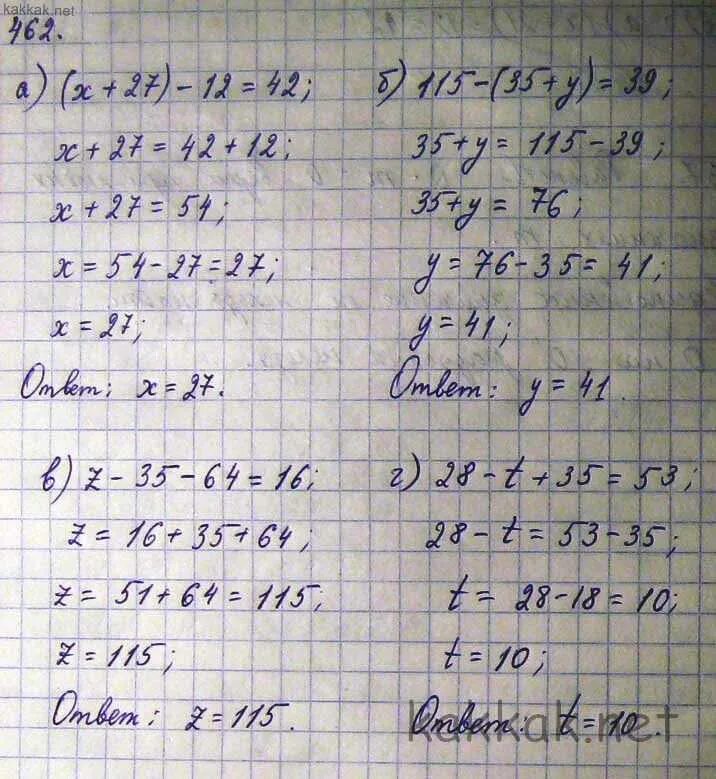 kakkak.net
462.
а) (x + 27) - 12 = 42;
x + 27 = 42 + 12;
x + 27 = 54;
x = 54 - 27 = 27;
x = 27;
Ответ: x = 27.
б) 115 - (35 + y) = 39;
35 + y = 115 - 39;
35 + y = 76;
y = 76 - 35 = 41;
y = 41;
Ответ: y = 41.
в) z - 35 - 64 = 16;
z = 16 + 35 + 64;
z = 51 + 64 = 115;
z = 115;
Ответ: z = 115.
г) 28 - t + 35 = 53;
28 - t = 53 - 35;
t = 28 - 18 = 10;
t = 10;
Ответ: t = 10.
kakkak.net